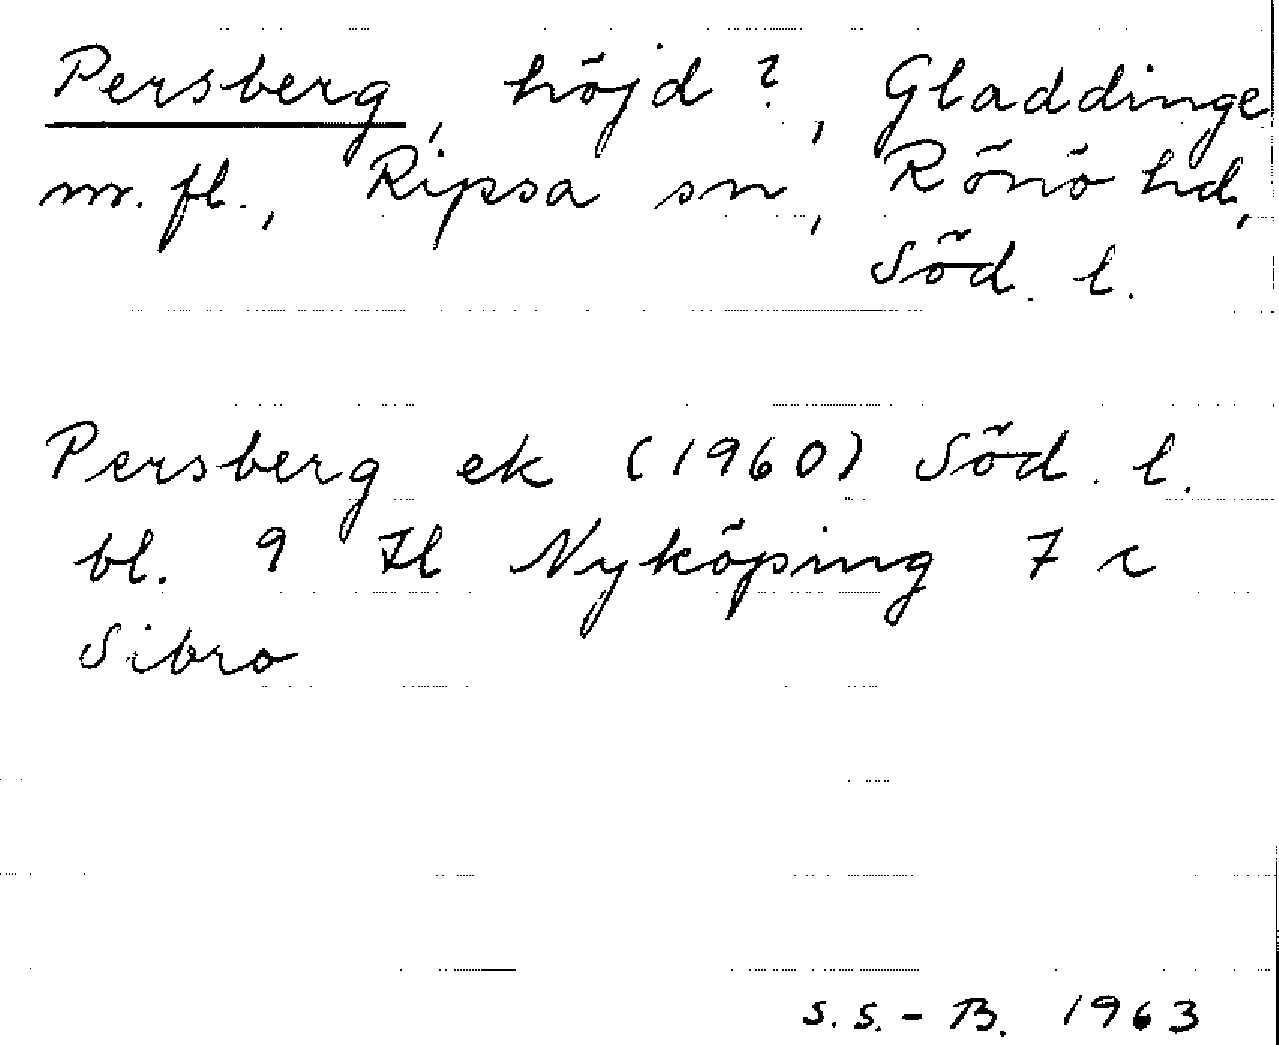 Persberg, höjd ?, Gladdinge
m. fl., Ripsa sn, Rönö hd,
Söd. l.
Persberg ek (1960) Söd. l.
bl. 9 Il Nyköping 7 c
Sibro
S.S.-B. 1963